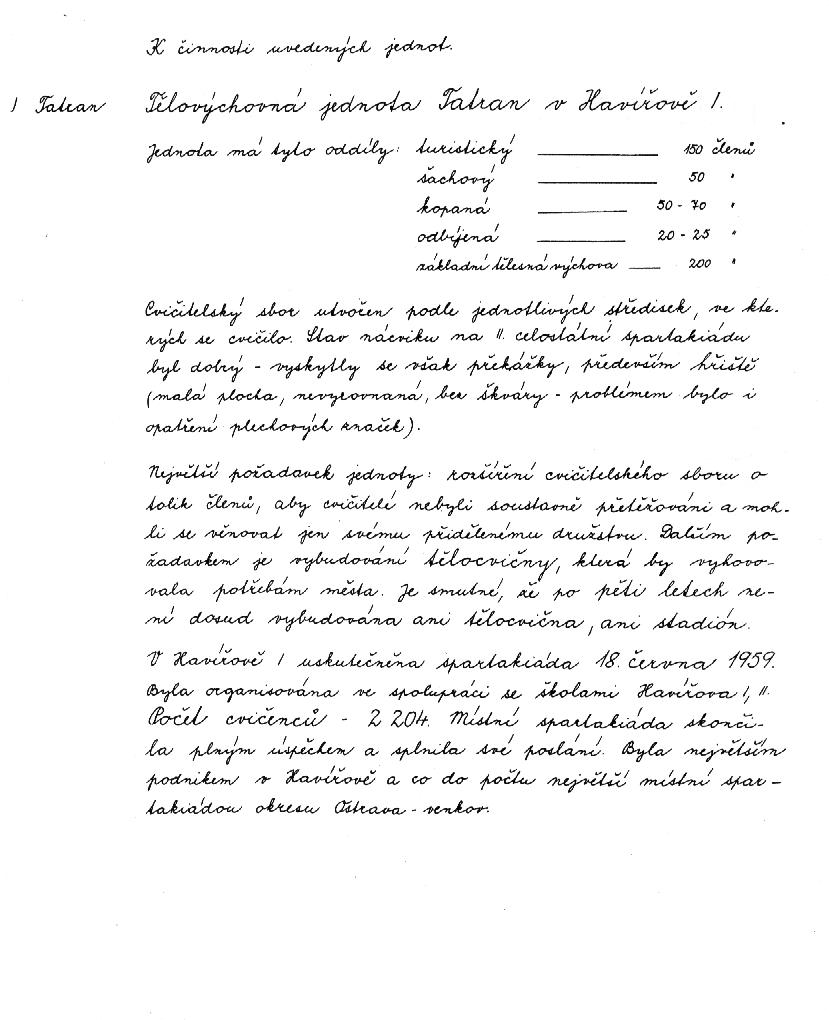 K činnosti uvedených jednot.
1 Tatran Tělovýchovná jednota Tatran v Havířově 1.
Jednota má tyto oddíly: turistický ——— 150 členů
šachový ——— 50 "
kopaná ——— 50 - 70 "
odbíjená ——— 20 - 25 "
základní tělesná výchova —— 200 "
Cvičitelský sbor utvořen podle jednotlivých středisek, ve kte-
rých se cvičilo. Stav nácviku na II. celostátní spartakiádu
byl dobrý - vyskytly se však překážky, především hřiště
(malá plocha, nevyrovnaná, bez škváry - problémem bylo i
opatření plechových značek).
Největší požadavek jednoty: rozšíření cvičitelského sboru o
tolik členů, aby cvičitelé nebyli soustavně přetěžováni a moh-
li se věnovat jen svému přidělenému družstvu. Dalším po-
žadavkem je vybudování tělocvičny, která by vyhovo-
vala potřebám města. Je smutné, že po pěti letech ne-
ní dosud vybudována ani tělocvična, ani stadión.
V Havířově 1 uskutečněna spartakiáda 18. června 1959.
Byla organisována ve spolupráci se školami Havířova I, II.
Počet cvičenců - 2 204. Místní spartakiáda skonči-
la plným úspěchem a splnila své poslání. Byla největším
podnikem v Havířově a co do počtu největší místní spar-
takiádou okresu Ostrava - venkov.